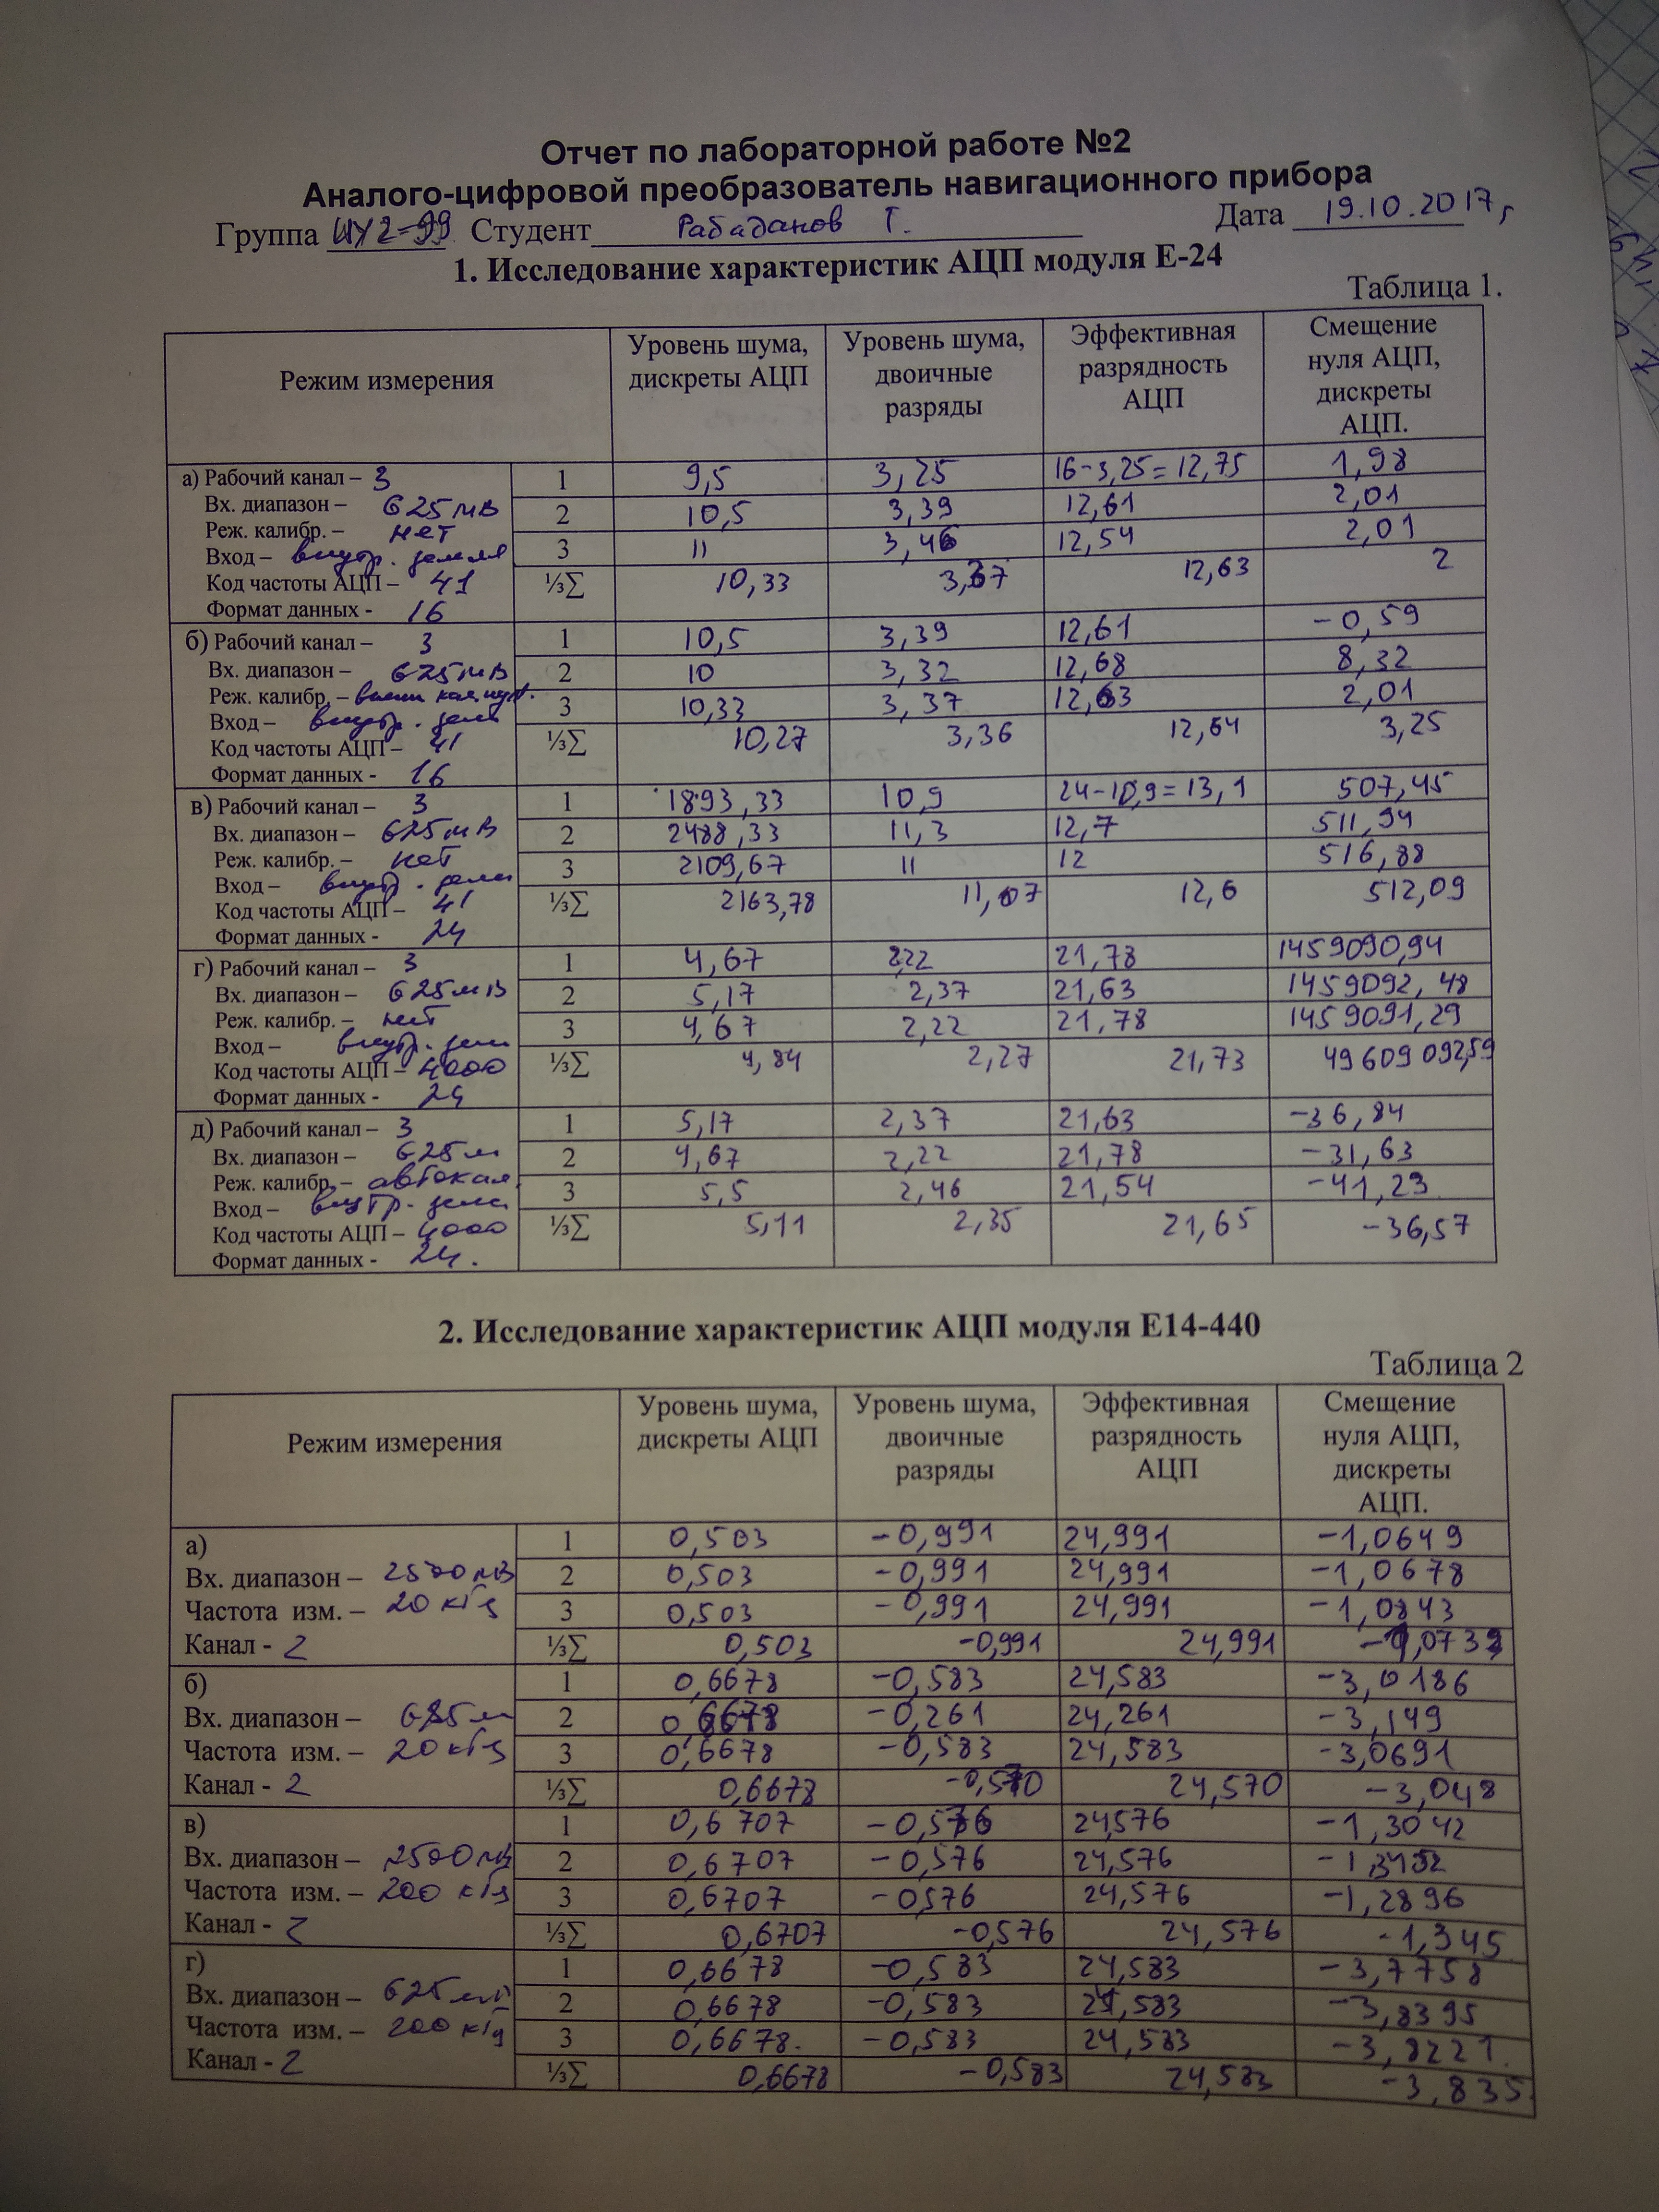 Отчет по лабораторной работе №2
Аналого-цифровой преобразователь навигационного прибора
Группа ИУ2-99 Студент Рабаданов Т. Дата 19.10.2017г
1. Исследование характеристик АЦП модуля Е-24
Таблица 1.
Режим измерения
Уровень шума, дискреты АЦП
Уровень шума, двоичные разряды
Эффективная разрядность АЦП
Смещение нуля АЦП, дискреты АЦП.
а) Рабочий канал – 3
Вх. диапазон – 625 мВ
Реж. калибр. – нет
Вход – внутр. земля
Код частоты АЦП – 41
Формат данных - 16
1 9,5 3,25 16-3,25=12,75 1,98
2 10,5 3,39 12,61 2,01
3 11 3,46 12,54 2,01
⅓∑ 10,33 3,37 12,63 2
б) Рабочий канал – 3
Вх. диапазон – 625 мВ
Реж. калибр. –
Вход – внутр. земл
Код частоты АЦП – 41
Формат данных - 16
1 10,5 3,39 12,61 -0,59
2 10 3,32 12,68 8,32
3 10,33 3,37 12,63 2,01
⅓∑ 10,27 3,36 12,64 3,25
в) Рабочий канал – 3
Вх. диапазон – 625 мВ
Реж. калибр. – нет
Вход – внутр. земл
Код частоты АЦП – 41
Формат данных - 24
1 1893,33 10,9 24-10,9=13,1 507,45
2 2488,33 11,3 12,7 511,94
3 2109,67 11 12 516,88
⅓∑ 2163,78 11,07 12,6 512,09
г) Рабочий канал – 3
Вх. диапазон – 625 мВ
Реж. калибр. – нет
Вход – внутр. зем
Код частоты АЦП – 4000
Формат данных - 24
1 4,67 2,22 21,78 1459090,94
2 5,17 2,37 21,63 1459092,48
3 4,67 2,22 21,78 1459091,29
⅓∑ 4,84 2,27 21,73 4960909259
д) Рабочий канал – 3
Вх. диапазон – 625 м
Реж. калибр. – автокал.
Вход – внутр. земл
Код частоты АЦП – 4000
Формат данных - 24.
1 5,17 2,37 21,63 -36,84
2 4,67 2,22 21,78 -31,63
3 5,5 2,46 21,54 -41,23
⅓∑ 5,11 2,35 21,65 -36,57
2. Исследование характеристик АЦП модуля Е14-440
Таблица 2
Режим измерения
Уровень шума, дискреты АЦП
Уровень шума, двоичные разряды
Эффективная разрядность АЦП
Смещение нуля АЦП, дискреты АЦП.
а)
Вх. диапазон – 2500 мВ
Частота изм. – 20 кГц
Канал - 2
1 0,503 -0,991 24,991 -1,0649
2 0,503 -0,991 24,991 -1,0678
3 0,503 -0,991 24,991 -1,0843
⅓∑ 0,503 -0,991 24,991
б)
Вх. диапазон – 625 м
Частота изм. – 20 кГц
Канал - 2
1 0,6678 -0,583 24,583 -3,0186
2 0,6678 -0,261 24,261 -3,149
3 0,6678 -0,583 24,583 -3,0691
⅓∑ 0,6678 -0,570 24,570 -3,048
в)
Вх. диапазон – 2500 мВ
Частота изм. – 200 кГц
Канал - 2
1 0,6707 -0,576 24,576 -1,3042
2 0,6707 -0,576 24,576
3 0,6707 -0,576 24,576 -1,2896
⅓∑ 0,6707 -0,576 24,576 -1,345
г)
Вх. диапазон – 625 мВ
Частота изм. – 200 кГц
Канал - 2
1 0,6678 -0,583 24,583 -3,7758
2 0,6678 -0,583 24,583 -3,8395
3 0,6678. -0,583 24,583 -3,8221.
⅓∑ 0,6678 -0,583 24,583 -3,835